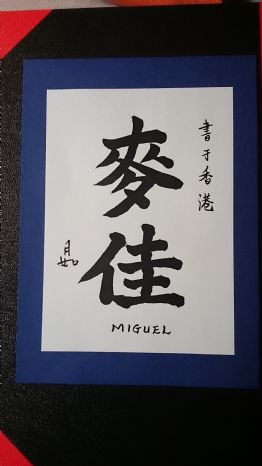 書于香港
麥佳
MIGUEL